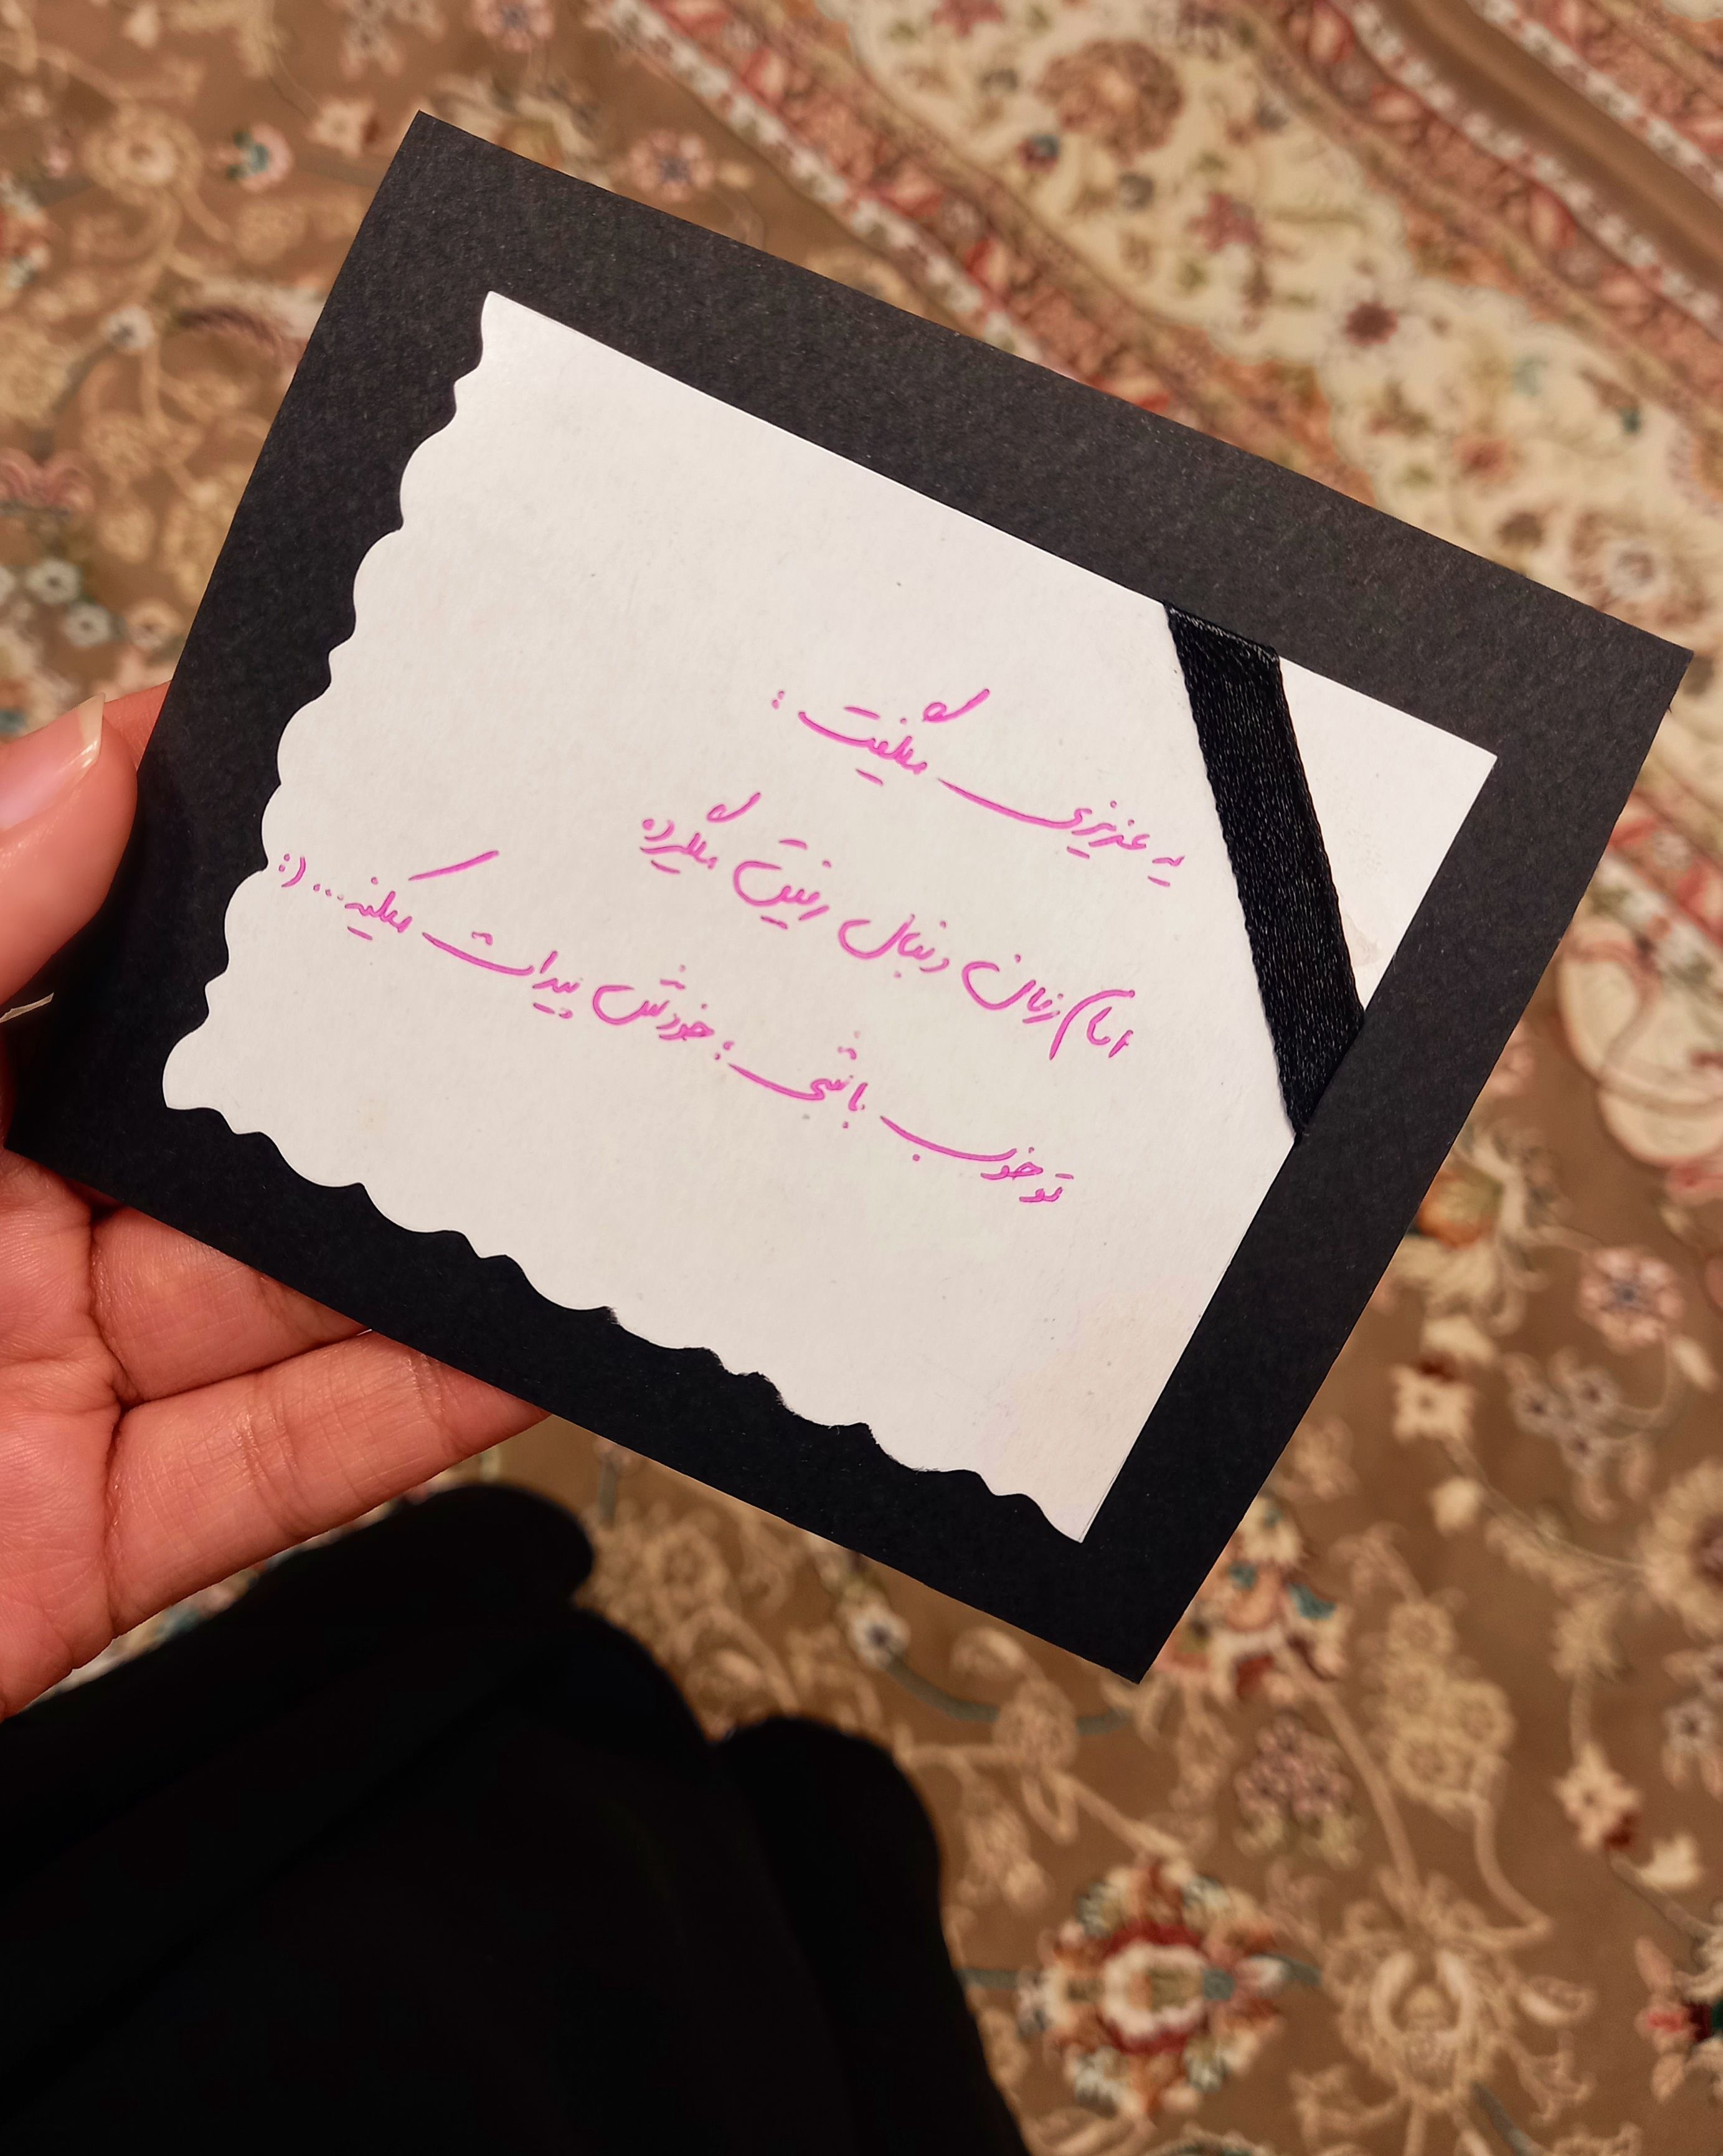 یه عزیزی میگفت :
امام زمان دنبال رفیق میگرده
تو خوب باشی؛ خودش پیدات میکنه...(: